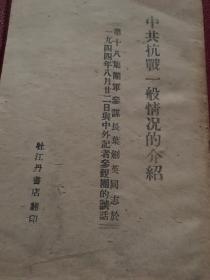 中共抗戰一般情况的介紹
第十八集團軍參謀長葉劍英同志於
一九四四年八月廿二日與中外記者參觀團的談話
牡江丹書店翻印